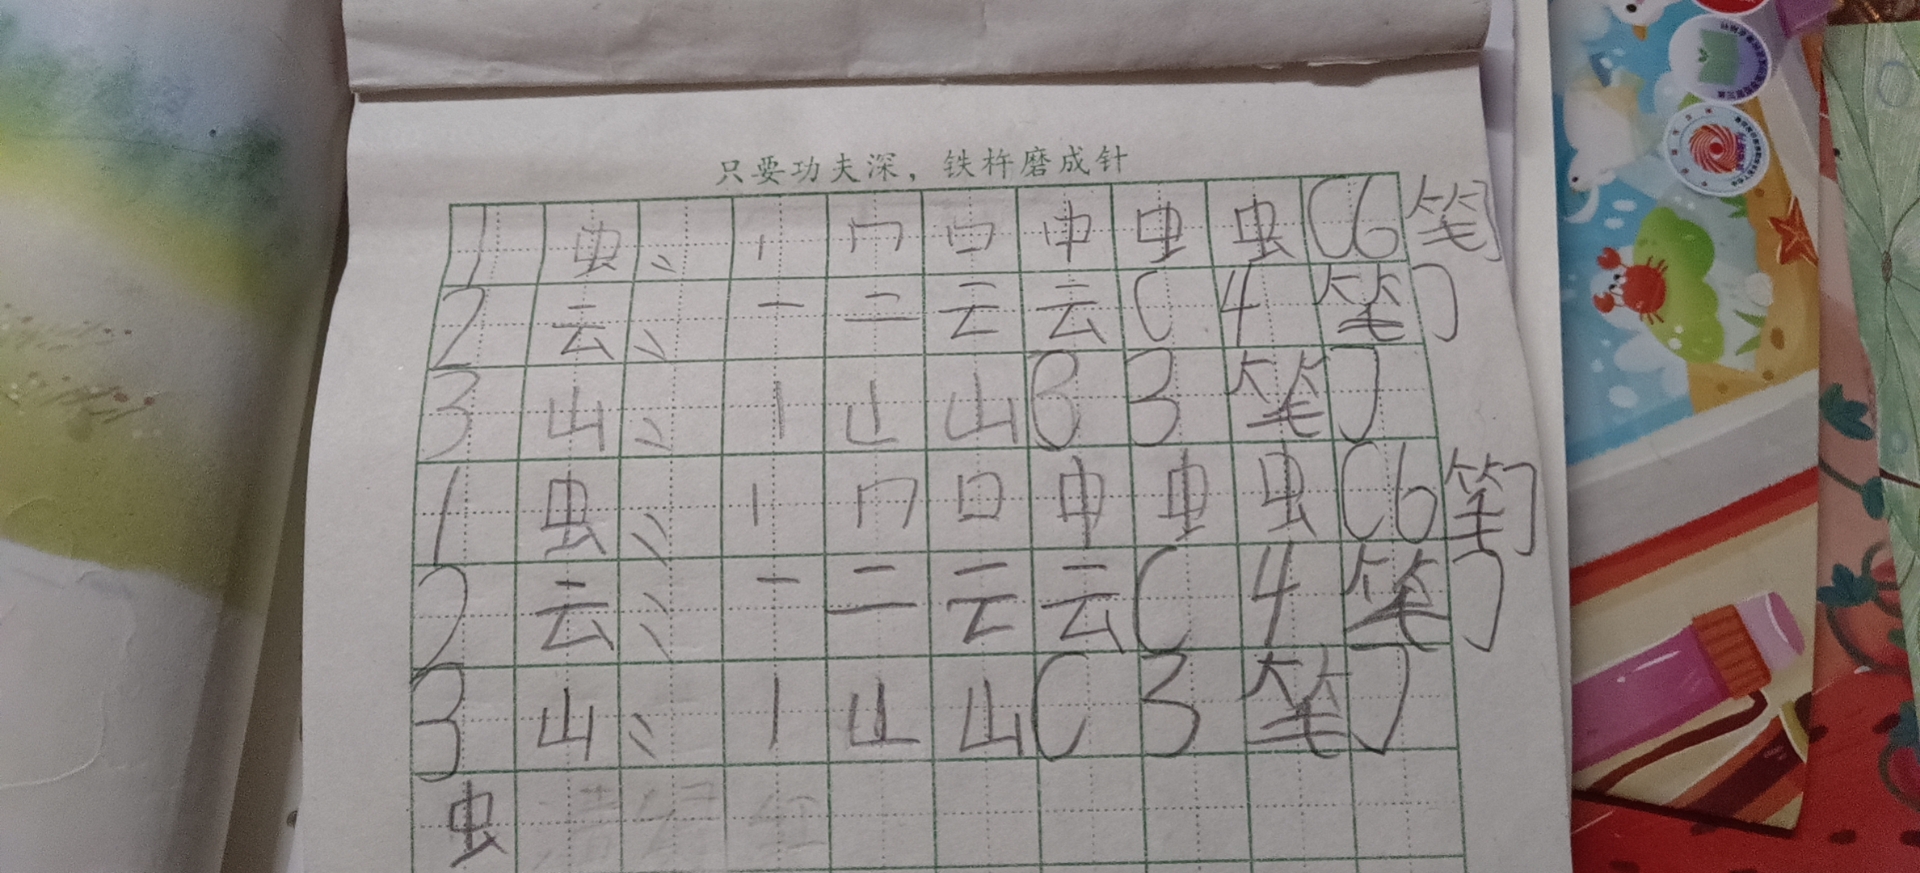 只要功夫深，铁杵磨成针
1 虫：丨 冂 口 中 虫 虫（6笔）
2 云：一 二 云 云（4笔）
3 山：丨 山 山（3笔）
1 虫：丨 冂 口 中 虫 虫（6笔）
2 云：一 二 云 云（4笔）
3 山：丨 山 山（3笔）
虫